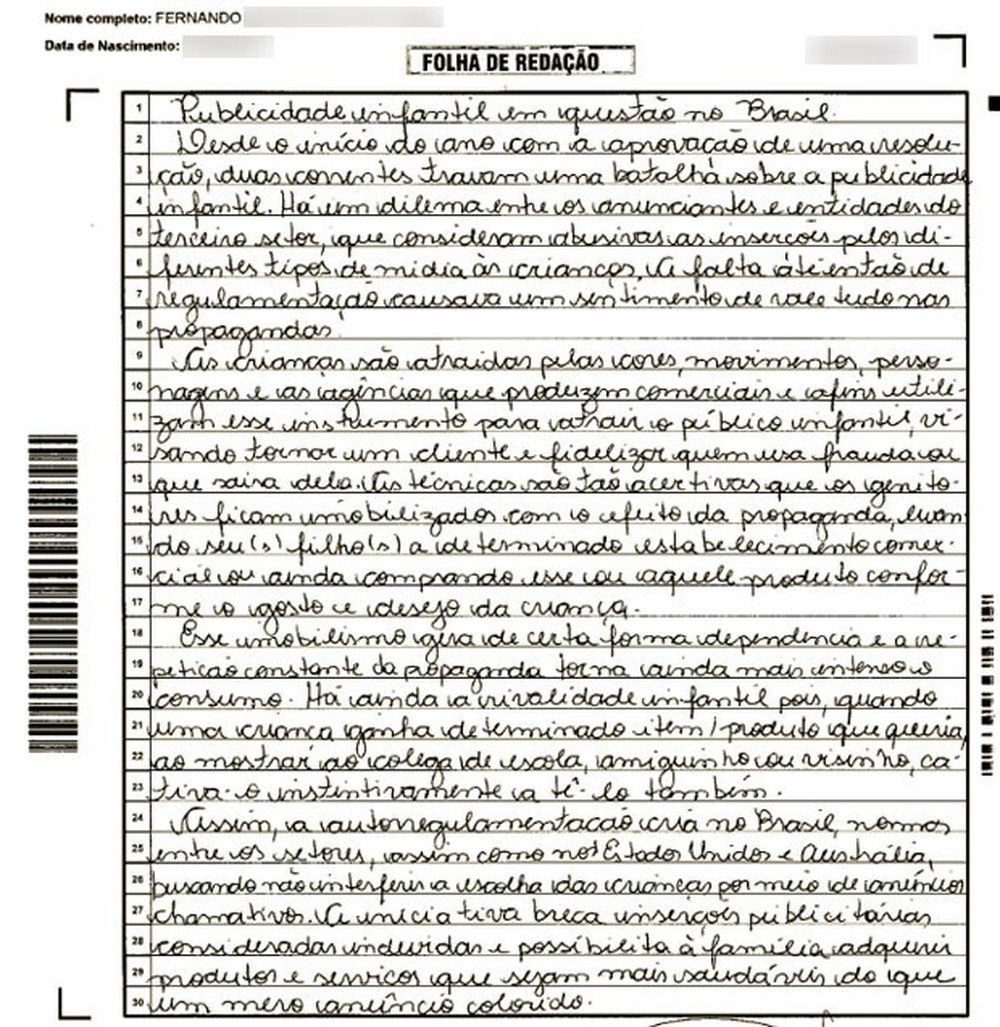 Nome completo: FERNANDO
Data de Nascimento:
FOLHA DE REDAÇÃO
1 Publicidade infantil em questão no Brasil.
2 Desde o início do ano com a aprovação de uma resolu-
3 ção, duas correntes travam uma batalha sobre a publicidade
4 infantil. Há um dilema entre os anunciantes e entidades do
5 terceiro setor, que consideram abusivas as inserções pelos di-
6 ferentes tipos de mídia às crianças. A falta até então de
7 regulamentação causava um sentimento de vale tudo nas
8 propagandas.
9 As crianças são atraídas pelas cores, movimentos, perso-
10 nagens e as agências que produzem comerciais e afins utili-
11 zam esse instrumento para atrair o público infantil, vi-
12 sando tornar um cliente e fidelizar quem usa frauda ou
13 que saira dela. As técnicas são tão acertivas que os genito-
14 res ficam imobilizados com o efeito da propaganda, levan-
15 do seu(s) filho(s) a determinado estabelecimento comer-
16 cial ou ainda comprando esse ou aquele produto confor-
17 me o gosto e desejo da criança.
18 Esse imobilismo gera de certa forma dependencia e a re-
19 petição constante da propaganda torna ainda mais intenso o
20 consumo. Há ainda a rivalidade infantil pois, quando
21 uma criança ganha determinado item/produto que queria,
22 ao mostrar ao colega de escola, amiguinho ou visinho, ca-
23 tiva-o instintivamente a tê-lo também.
24 Assim, a autorregulamentação cria no Brasil, normas
25 entre os setores, assim como nos Estados Unidos e Austrália,
26 buscando não interferir a escolha das crianças por meio de anúncios
27 chamativos. A iniciativa breca inserções publicitárias
28 consideradas indevidas e possibilita à família adquirir
29 produtos e serviços que sejam mais saudáveis do que
30 um mero anúncio colorido.